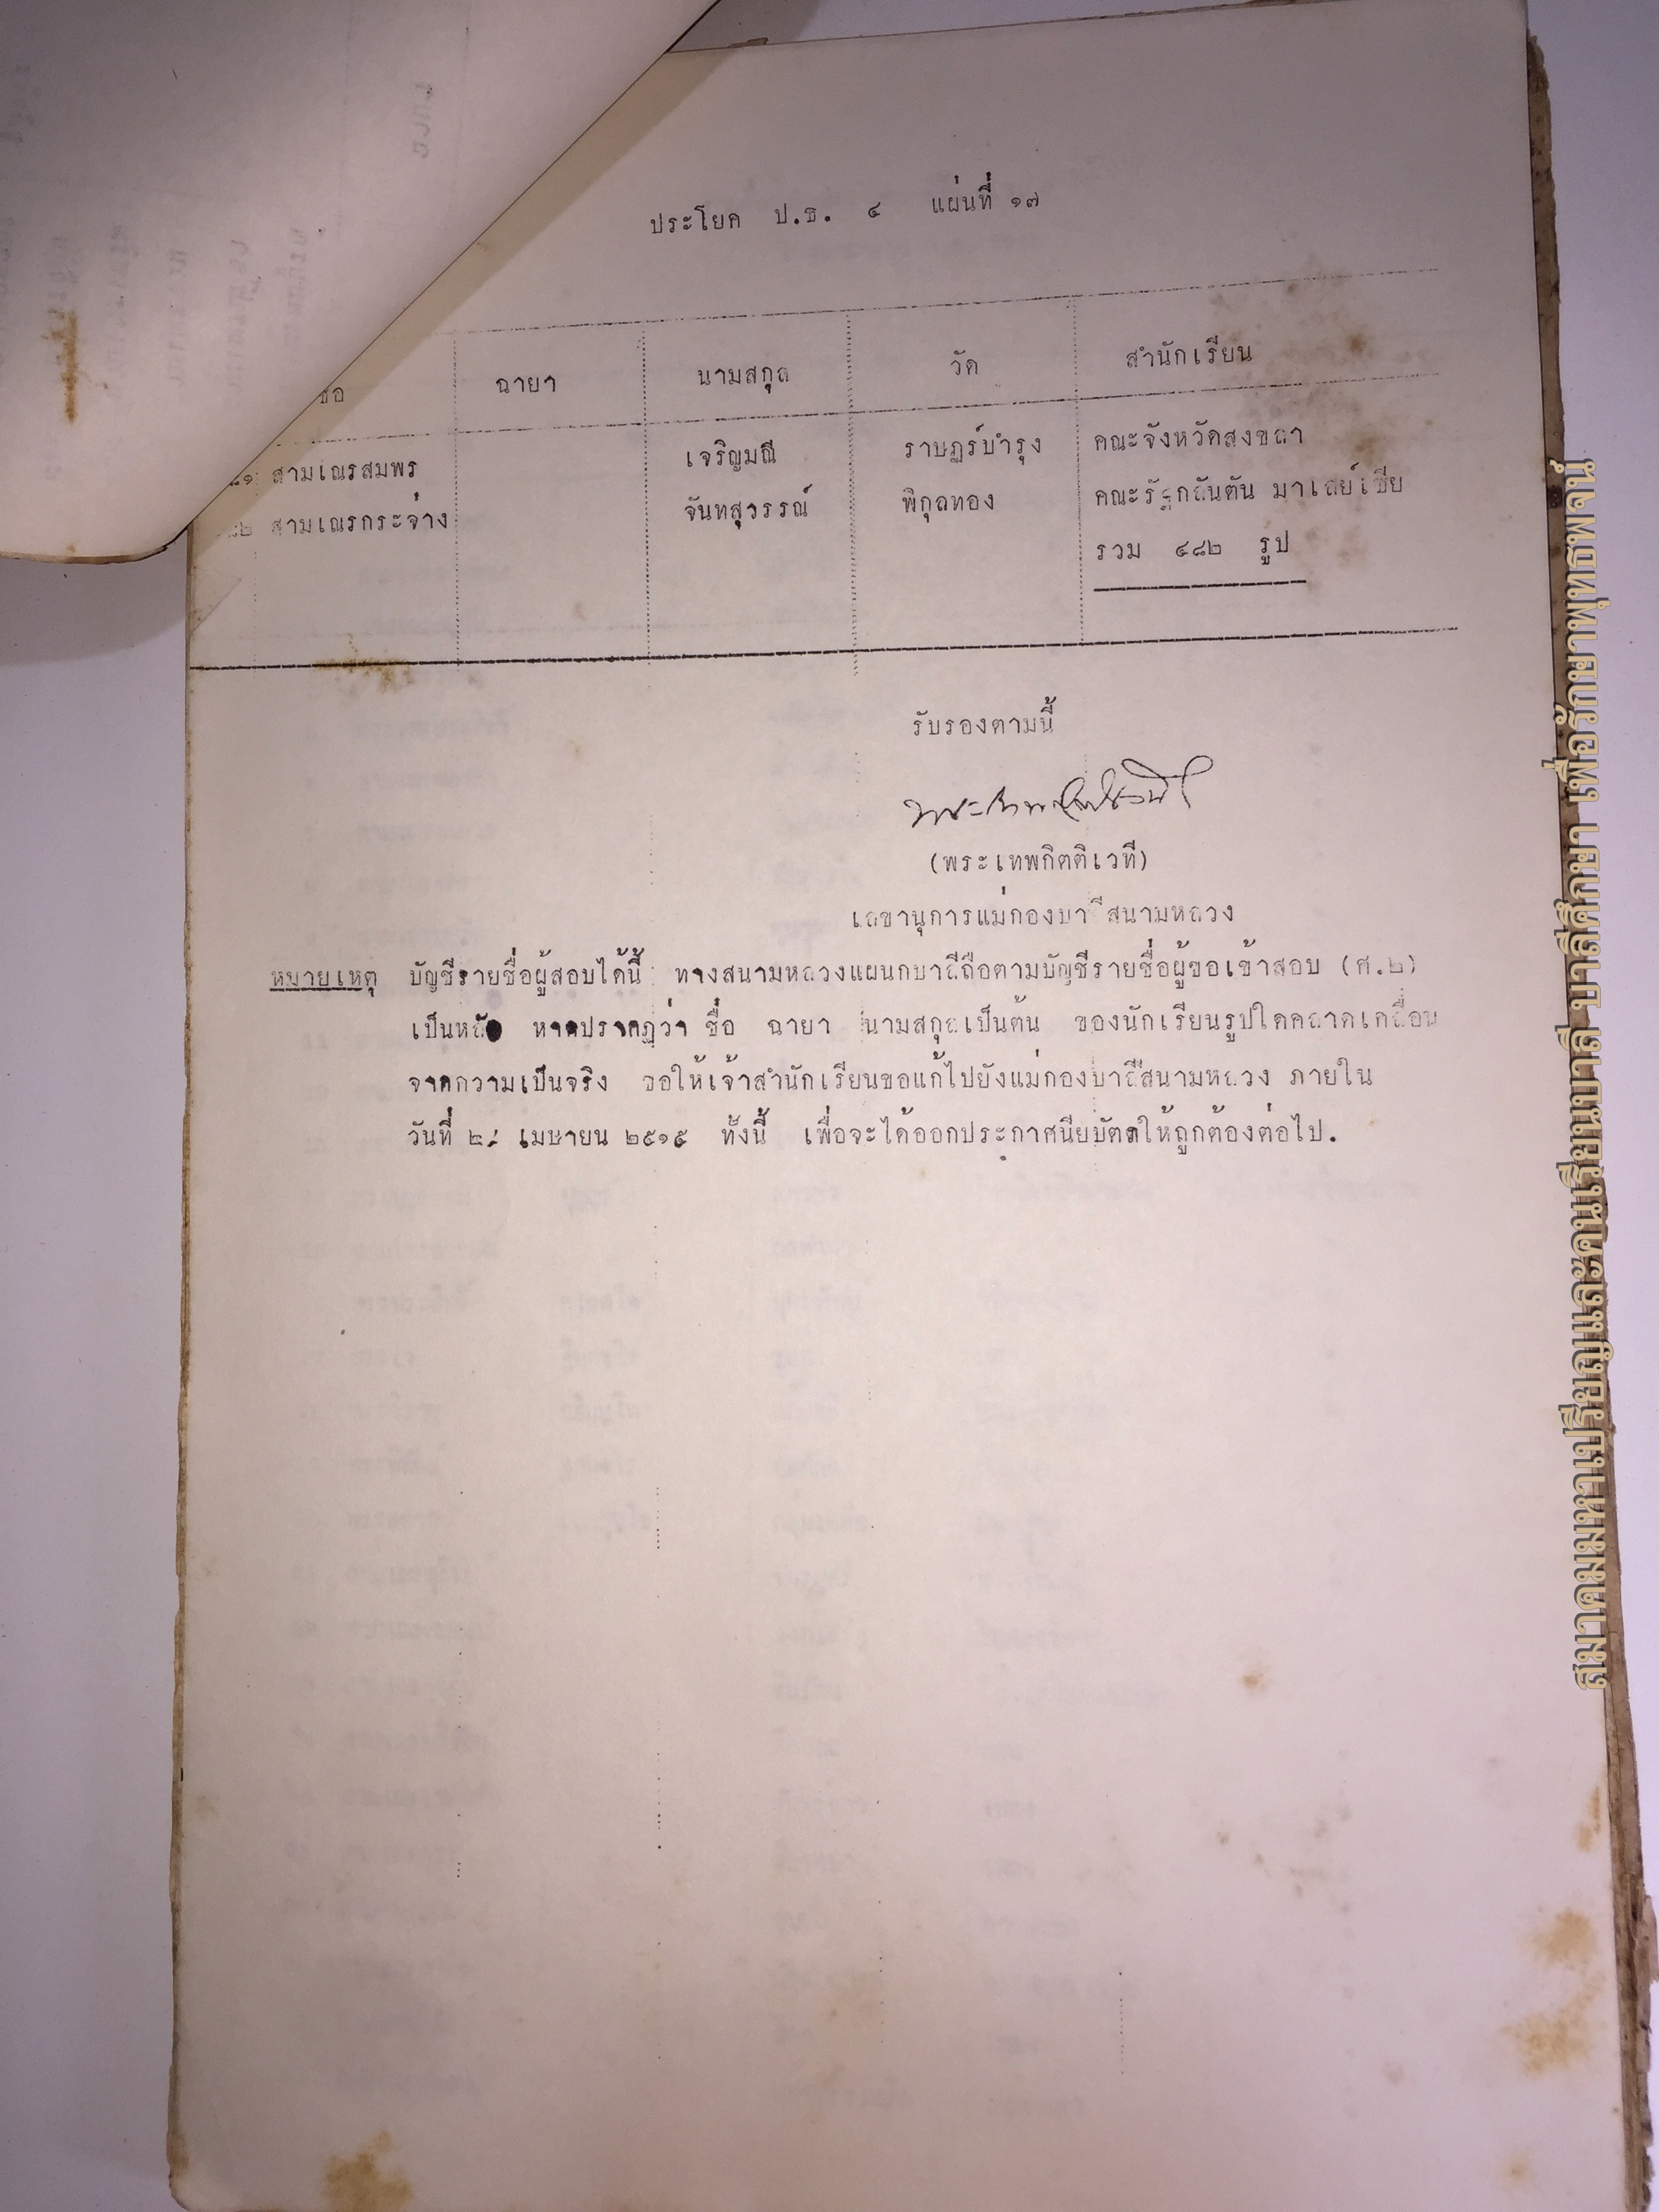 ประโยค ป.ธ. ๔ แผ่นที่ ๑๗
ชื่อ ฉายา นามสกุล วัด สำนักเรียน
๘๑ สามเณรสมพร เจริญมณี ราษฎร์บำรุง คณะจังหวัดสงขลา
๘๒ สามเณรกระจ่าง จันทสุวรรณ์ พิกุลทอง คณะรัฐกลันตัน มาเลย์เซีย
รวม ๔๘๒ รูป
รับรองตามนี้
(พระเทพกิตติเวที)
เลขานุการแม่กองบาลีสนามหลวง
หมายเหตุ บัญชีรายชื่อผู้สอบได้นี้ ทางสนามหลวงแผนกบาลีถือตามบัญชีรายชื่อผู้ขอเข้าสอบ (ศ.๒)
เป็นหลัก หากปรากฏว่า ชื่อ ฉายา นามสกุลเป็นต้น ของนักเรียนรูปใดคลาดเคลื่อน
จากความเป็นจริง ขอให้เจ้าสำนักเรียนขอแก้ไปยังแม่กองบาลีสนามหลวง ภายใน
วันที่ เมษายน ๒๕๑๕ ทั้งนี้ เพื่อจะได้ออกประกาศนียบัตรให้ถูกต้องต่อไป.
สมาคมมหาเปรียญและคนเรียนบาลี บาลีศึกษา เพื่อรักษาพุทธพจน์